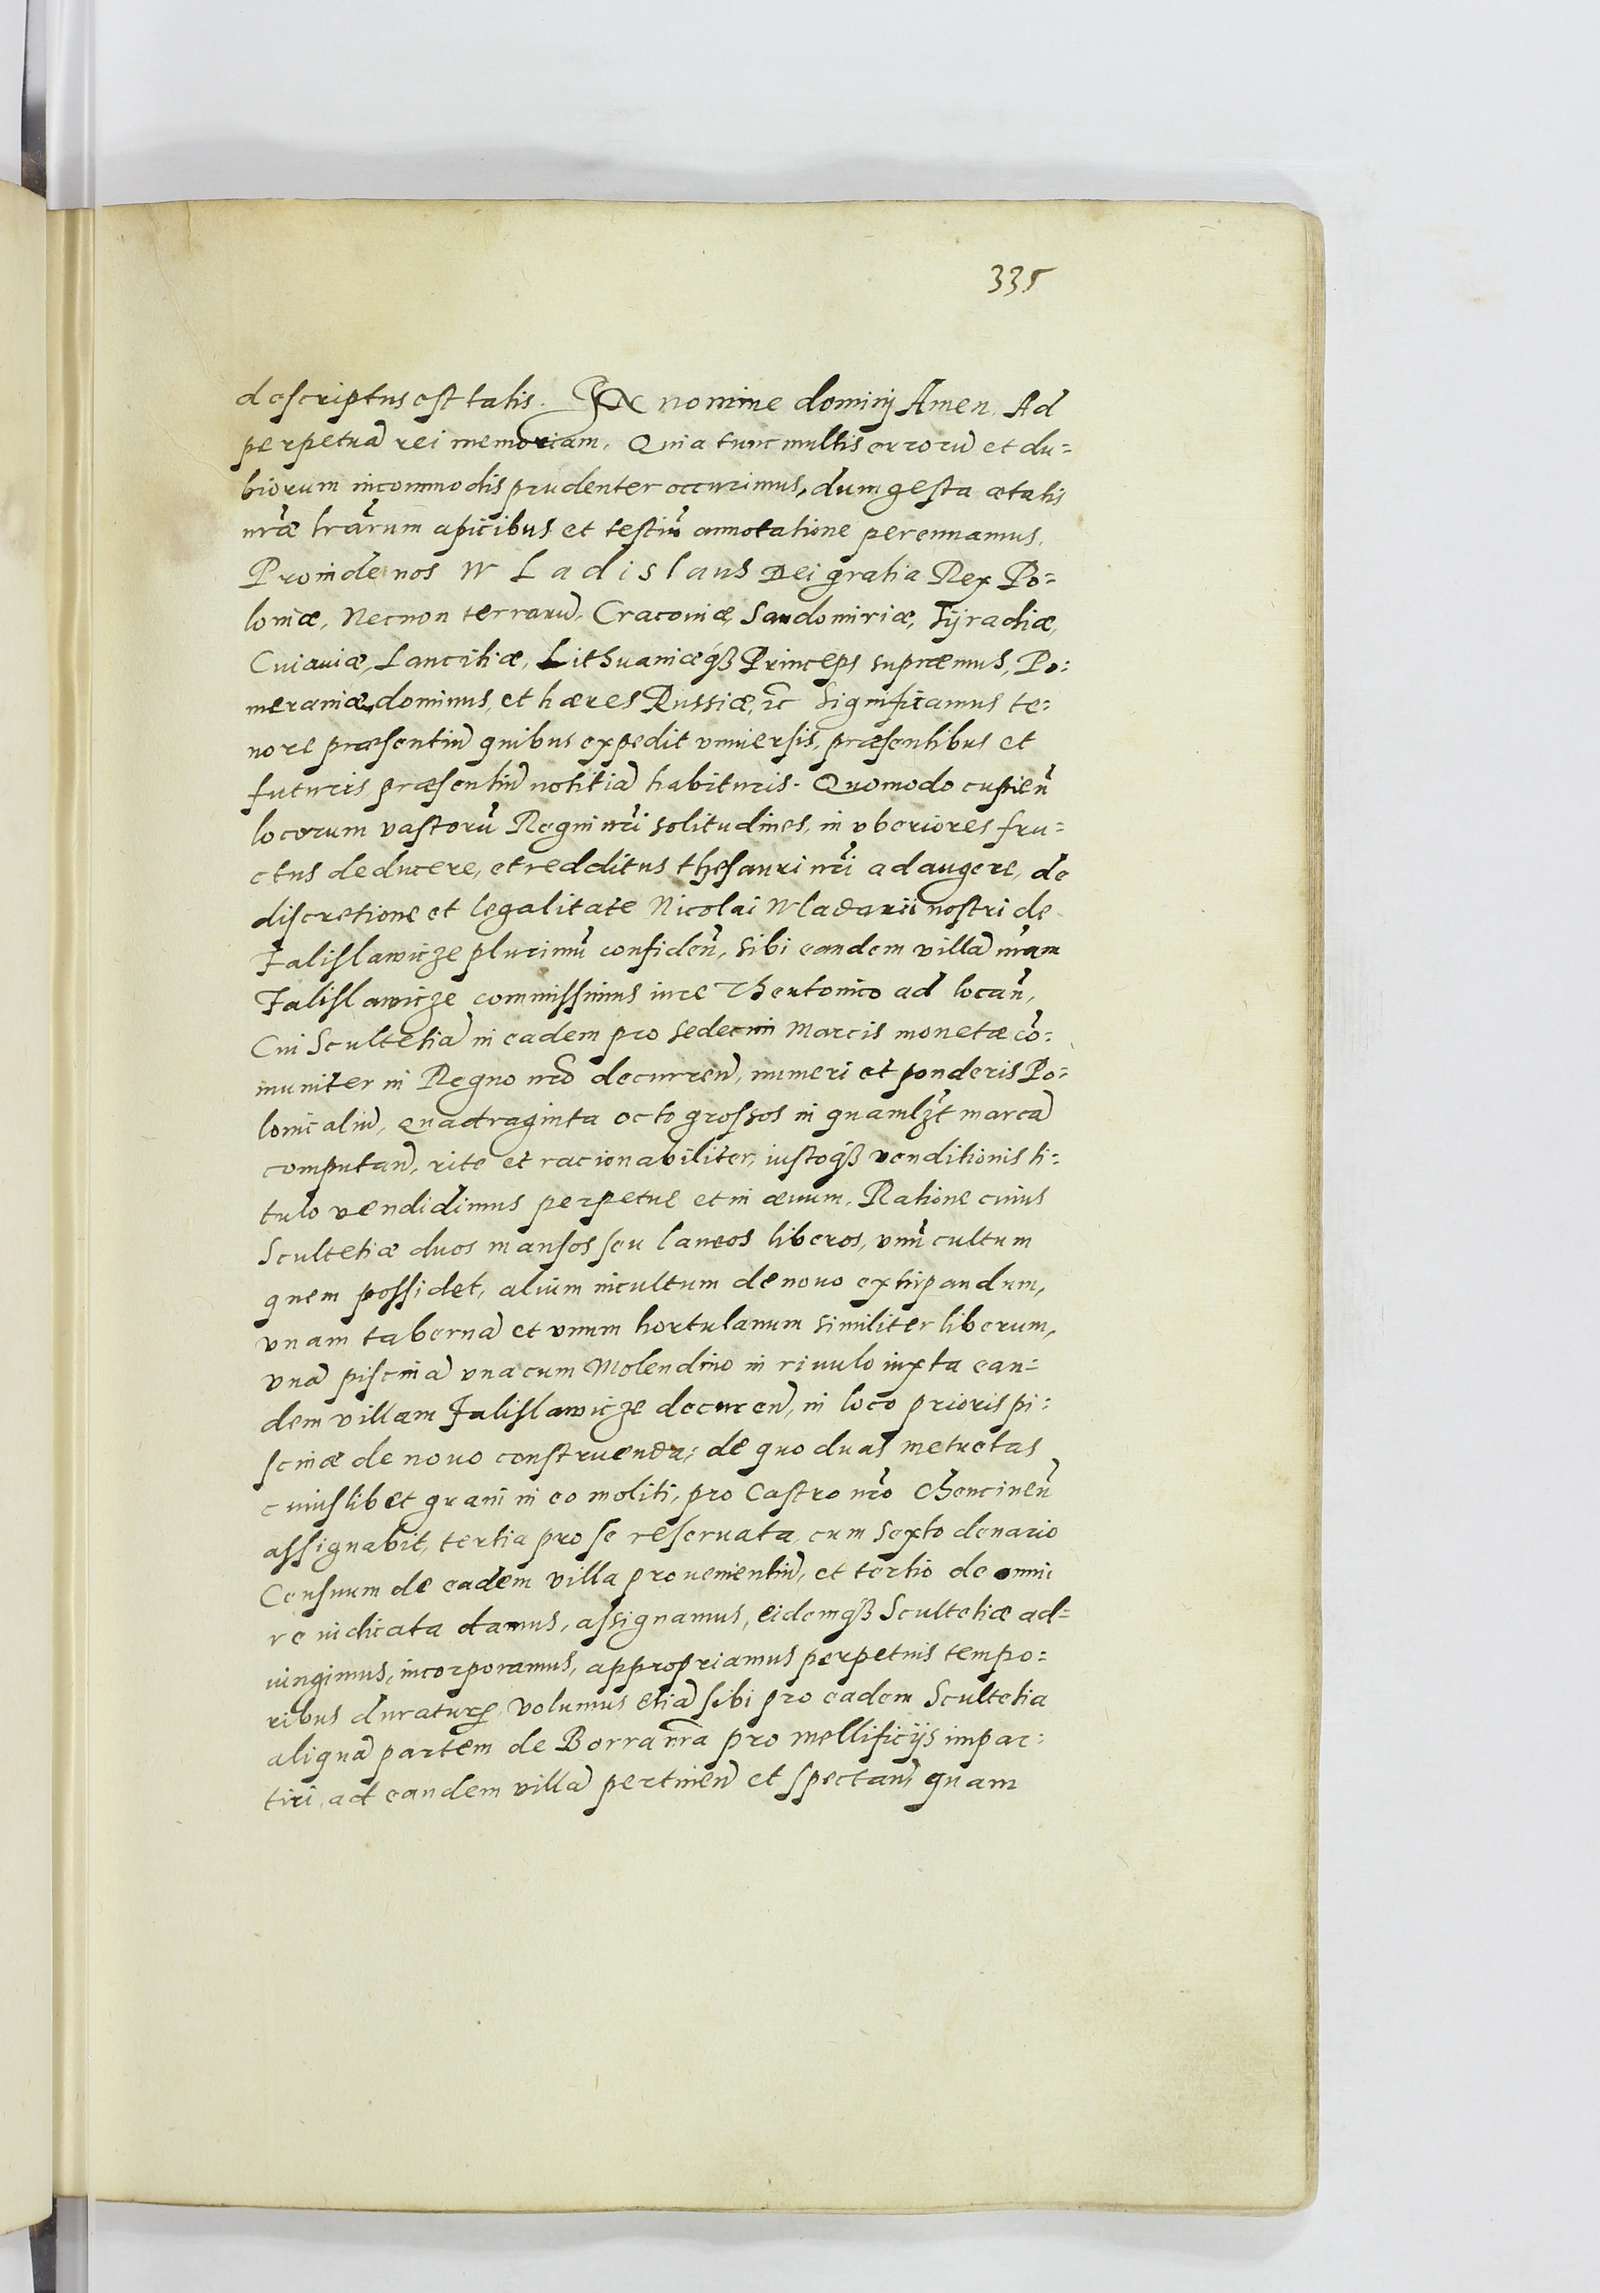 335
descriptus est talis. IN nomine dominij Amen. Ad
perpetuā rei memoriam. Quia tunc multis errorū et du=
biorum incommodis prudenter occurimus, dum gesta ætatis
nr̃æ lr̃arum apicibus et testiū annotatione perennamus.
Proinde nos Wladislaus Dei gratia Rex Po=
loniæ, Necnon terrarū, Cracoviæ, Sandomiriæ, Syradiæ,
Cuiaviæ, Lancitiæ, Lithuaniæq́ꝫ Princeps supræmus, Po=
meraniæ, dominus, et hæres Russiæ, ꝛc Significamus te=
nore præsentiū quibus expedit vniuersis, præsentibus et
futuris præsentiū notitiā habituris. Quomodo cupien̄
locorum vastorū Regni nr̃i solitudines, in vberiores fru=
ctus deducere, et redditus thesauri nr̃i adaugere, de
discretione et legalitate Nicolai Wladarii nostri de
Falislawicze plurimū confiden̄, sibi eandem villā nr̃am
Falislawicze commissimus iure Theutonico ad locan̄,
Cui Scultetiā in eadem pro sedecim Marcis monetæ cō=
muniter in Regno nr̃o decurren̄, numeri et ponderis Po=
lonicaliū, quadraginta octo grossos in quamlꝫt marcā
computan̄, rite et racionabiliter, iustoq́ꝫ venditionis ti=
tulo vendidimus perpetue et in æuum. Ratione cuius
Scultetiæ duos mansos seu laneos liberos, vnū cultum
quem possidet, alium incultum de nouo extirpandum,
vnam tabernā et vnum hortulanum similiter liberum,
vnā piscinā vna cum Molendino in riuulo iuxta ean=
dem villam Falislawicze decuren̄, in loco prioris pi=
scinæ de nouo construenda; de quo duas metretas
cuiuslibet grani in eo moliti, pro Castro nr̃o Chencinen̄
assignabit, tertia pro se reseruata, cum sexto denario
Censuum de eadem villa prouenientiū, et tertio de omni
re iudicata damus, assignamus, eidemq́ꝫ Scultetiæ ad=
iungimus, incorporamus, appropriamus perpetuis tempo=
ribus duraturꝭ, volumus etiā sibi pro eadem Scultetia
aliquā partem de Borra nr̃a pro mellificijs impar=
tiri, ad eandem villā pertinen̄ et spectan̄, quam